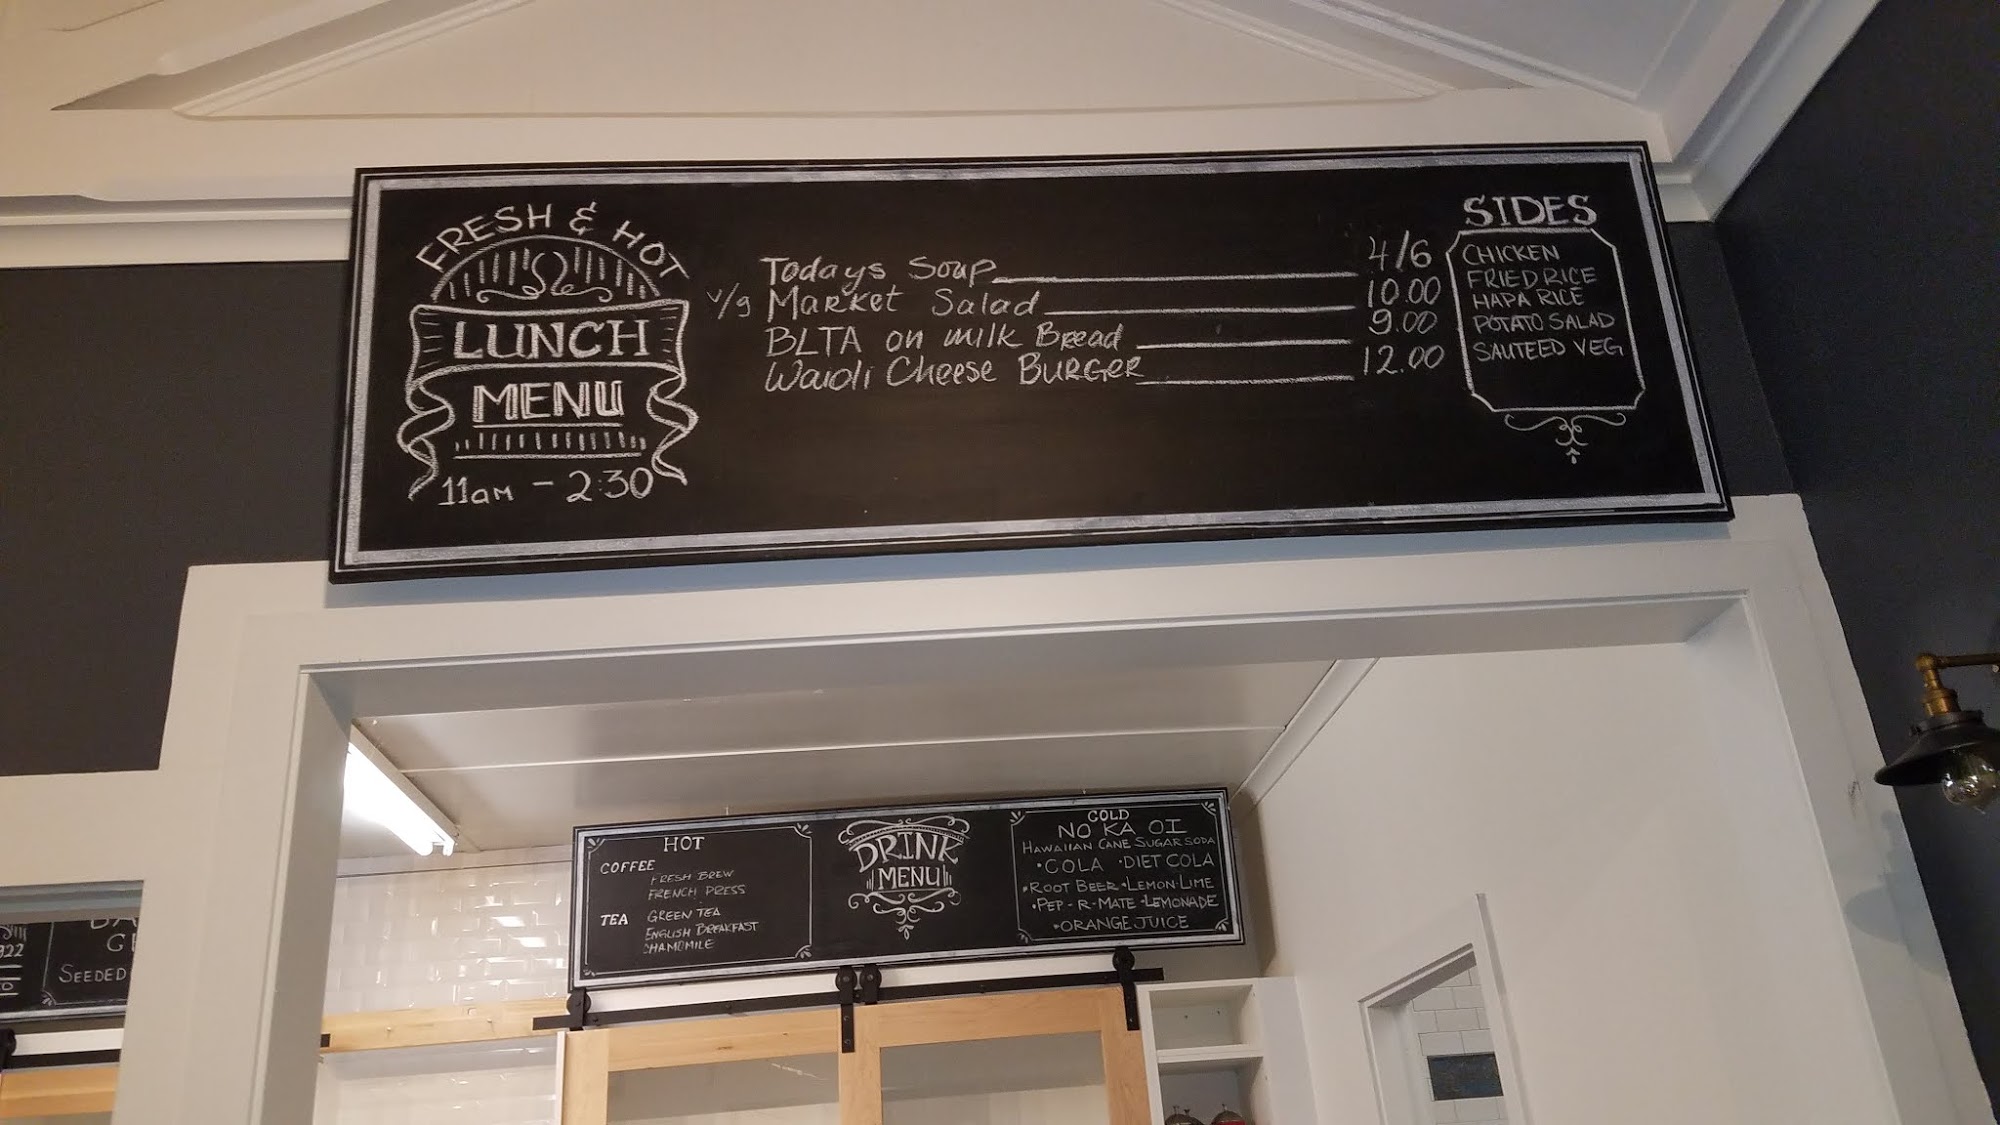 FRESH & HOT
LUNCH
MENU
11am - 2:30
Todays Soup 4/6
v/g Market Salad 10.00
BLTA on milk Bread 9.00
Waioli Cheese BURGER 12.00
SIDES
CHICKEN
FRIED RICE
HAPA RICE
POTATO SALAD
SAUTEED VEG
HOT
COFFEE
FRESH BREW
FRENCH PRESS
TEA GREEN TEA
ENGLISH BREAKFAST
CHAMOMILE
DRINK
MENU
COLD
NO KA OI
HAWAIIAN CANE SUGAR SODA
•COLA •DIET COLA
•ROOT BEER •LEMON-LIME
•PEP-R-MATE •LEMONADE
•ORANGE JUICE
922
SEEDED